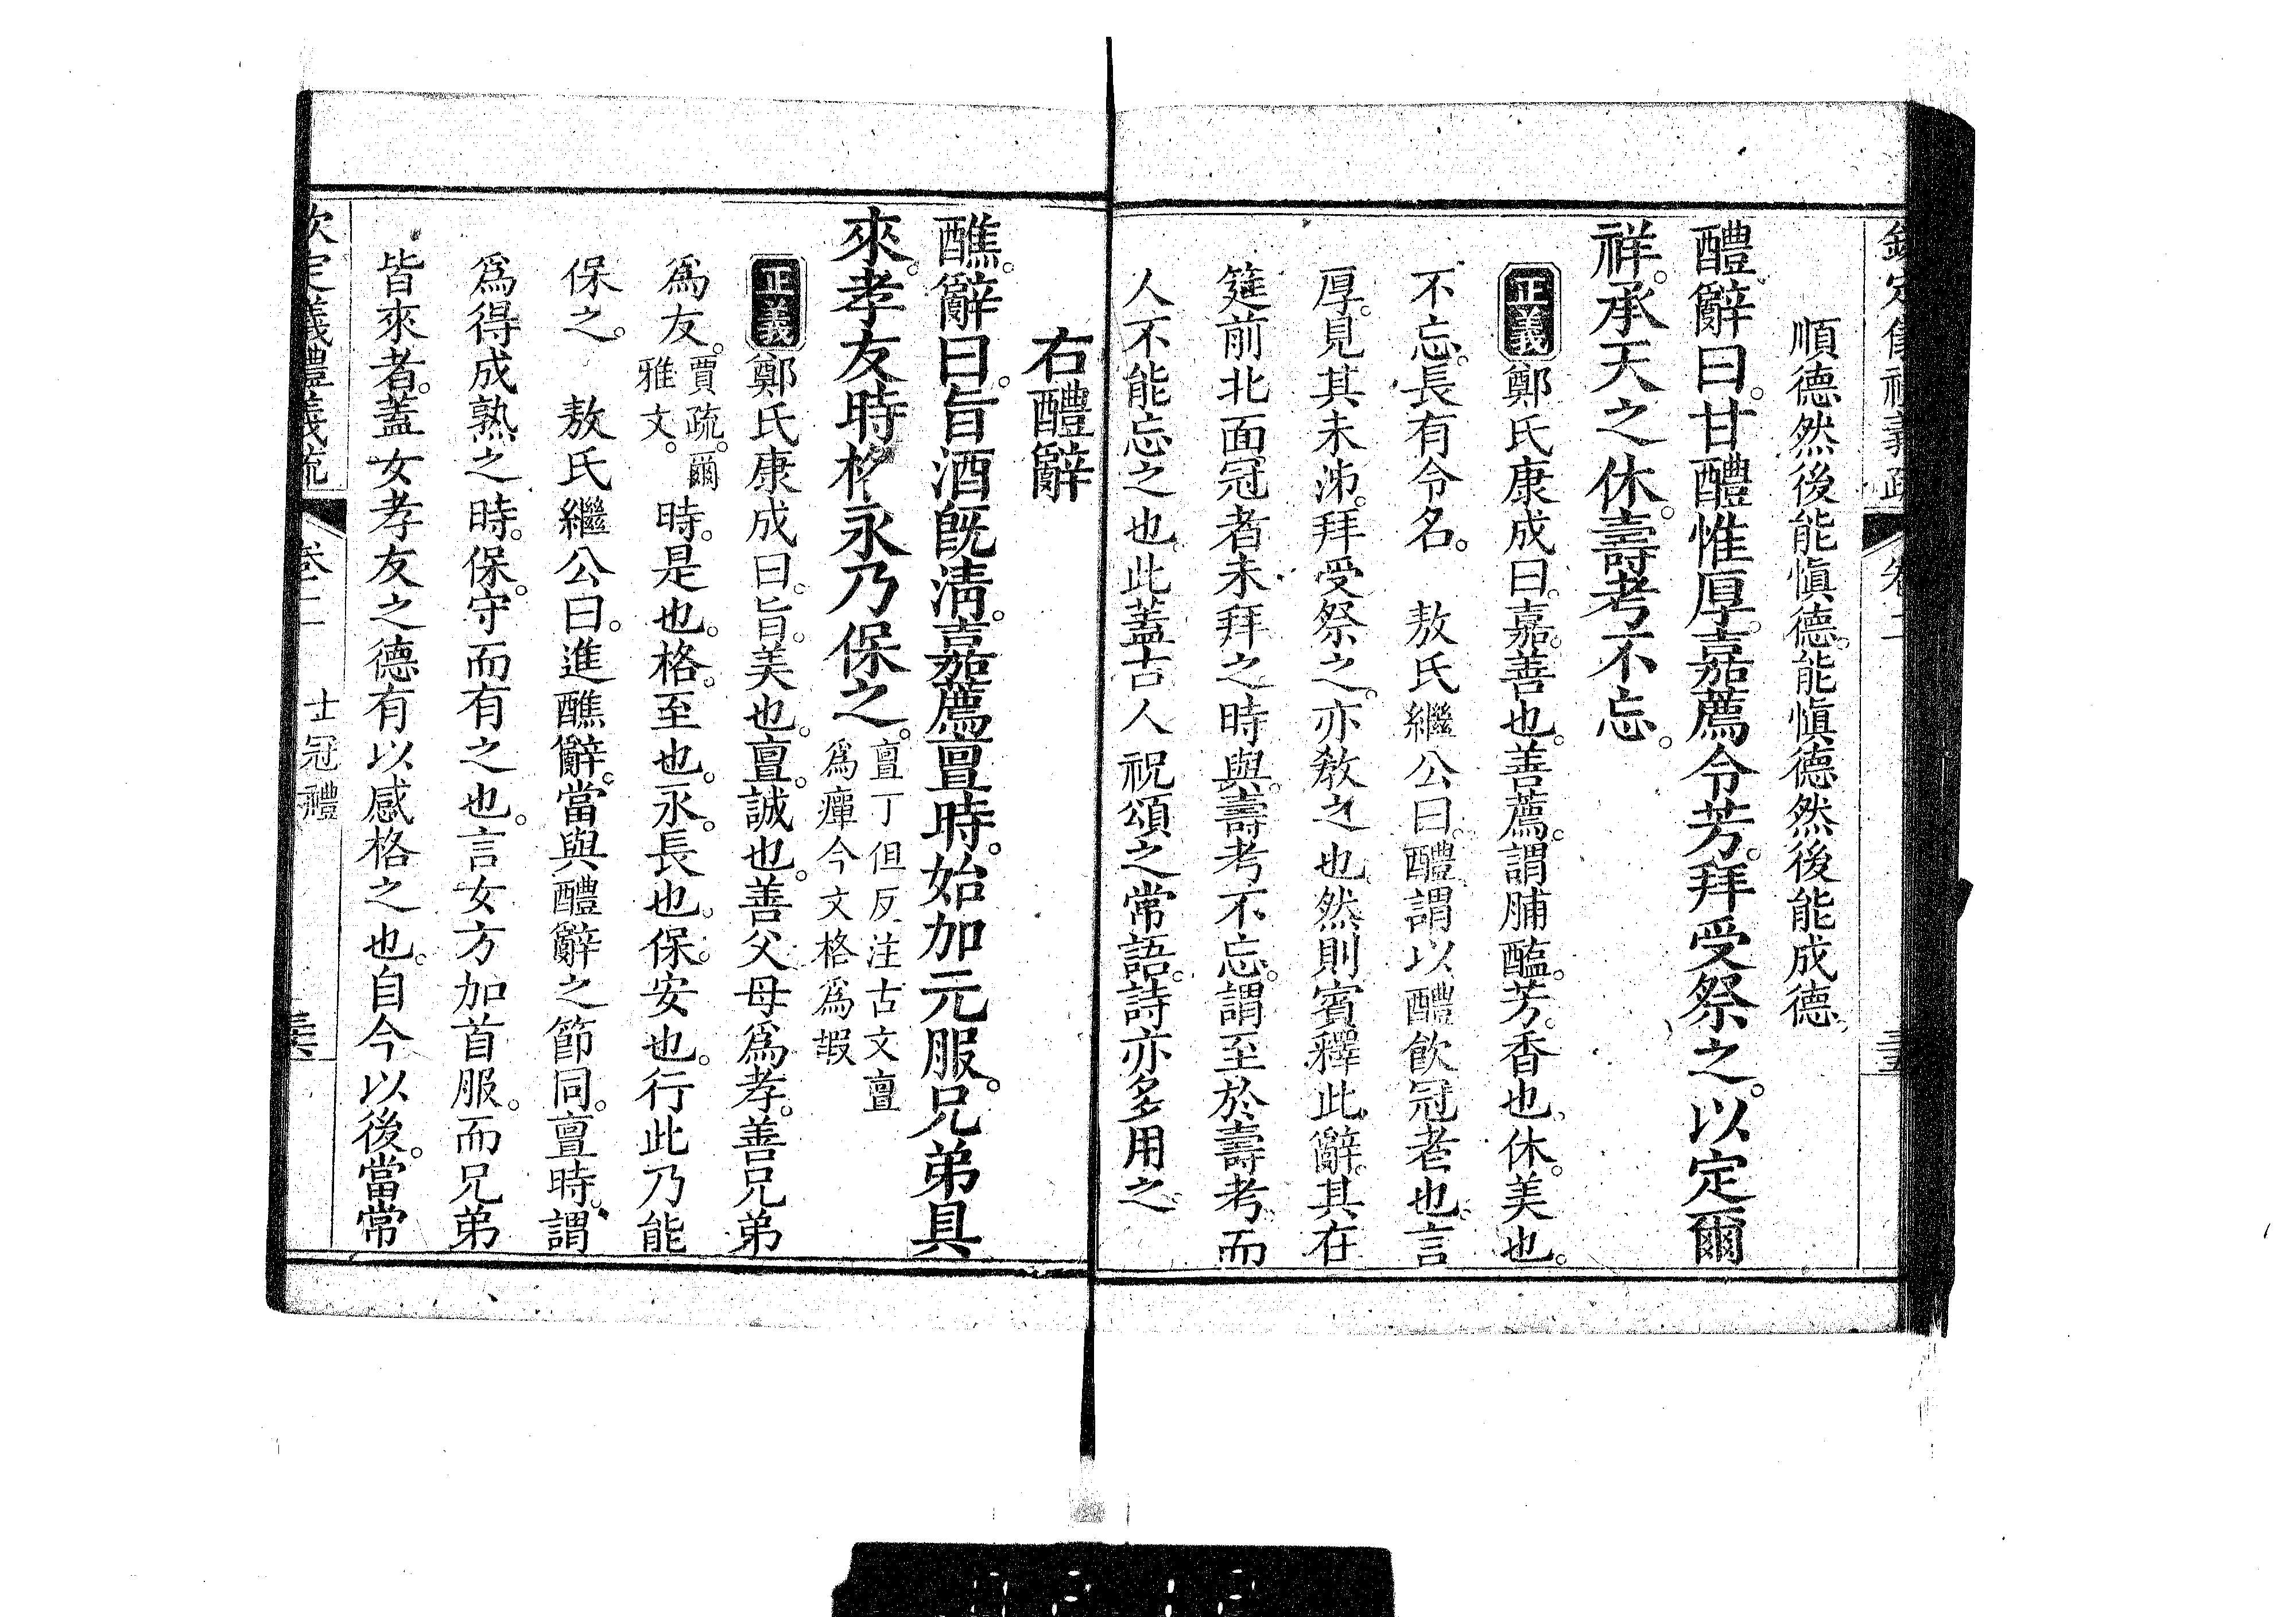 順德然後能愼德。能愼德然後能成德。
醴辭曰。甘醴惟厚。嘉薦令芳。拜受祭之。以定爾
祥。承天之休。壽考不忘。
正義鄭氏康成曰。嘉。善也。善薦。謂脯醢。芳。香也。休。美也。
不忘。長有令名。 敖氏繼公曰。醴。謂以醴飮冠者也。言
厚。見其未沛。拜受祭之。亦敎之也。然則賓釋此辭。其在
筵前北面冠者未拜之時與。壽考不忘。謂至於壽考。而
人不能忘之也。此蓋古人祝頌之常語。詩亦多用之。
右醴辭
醮。辭曰。旨酒旣淸。嘉薦亶時。始加元服。兄弟具
來。孝友時格。永乃保之。亶丁但反注古文亶
爲癉今文格爲嘏
正義鄭氏康成曰。旨。美也。亶。誠也。善父母爲孝。善兄弟
爲友。賈疏。爾
雅文。時。是也。格。至也。永。長也。保。安也。行此乃能
保之。 敖氏繼公曰。進醮辭。當與醴辭之節同。亶時。謂
爲得成熟之時。保。守而有之也。言女方加首服。而兄弟
皆來者。蓋女孝友之德有以感格之也。自今以後。當常
欽定儀禮義疏 卷二 士冠禮